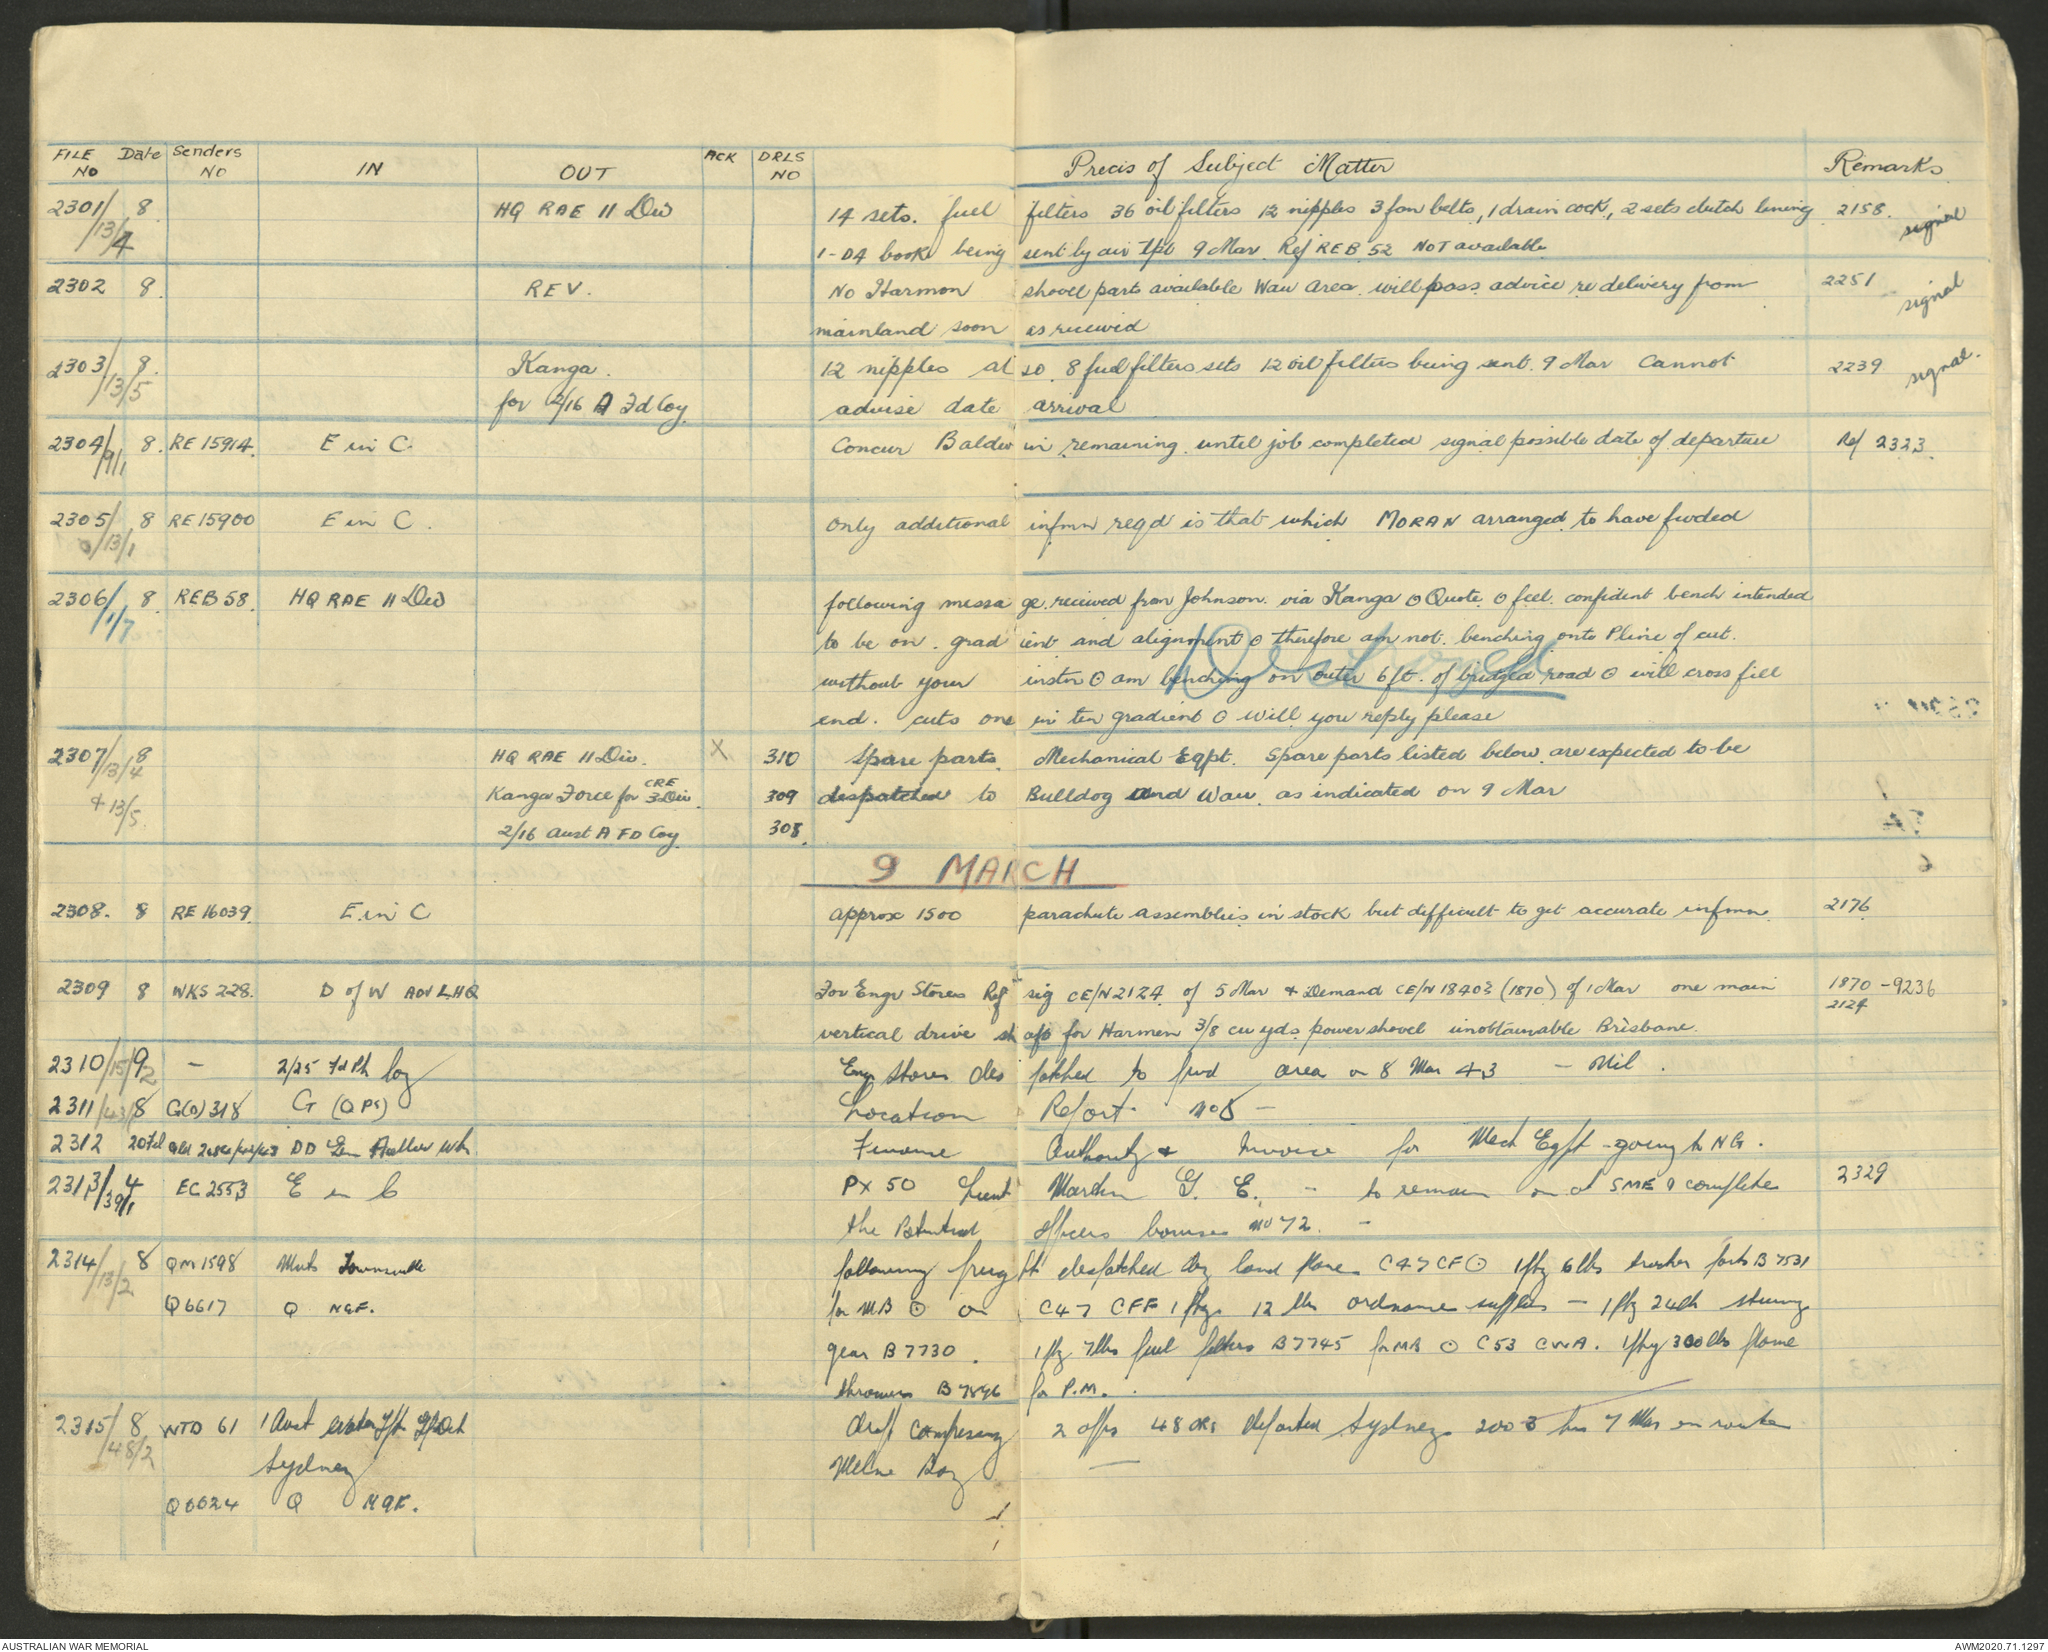 FILE NO Date Senders NO IN OUT ACK DRLS NO Precis of Subject Matter Remarks
2301/13/4 8 HQ RAE 11 Div 14 sets. fuel filters 36 oil filters 12 nipples 3 fan belts, 1 drain cock, 2 sets clutch lining 2158. signal
1-D4 book being sent by air tpt 9 Mar. Ref REB 52 NOT available
2302 8. REV. No Harmon shovel parts available Wau area. will pass advice re delivery from 2251 signal
mainland soon as received
2303/13/5 8. Kanga. 12 nipples at so. 8 fuel filters sets 12 oil filters being sent. 9 Mar Cannot 2239 signal.
for 2/16 A Fd Coy. advise date arrival
2304/9/1 8. RE 15914. E in C. Concur Baldwin remaining until job completed signal possible date of departure Ref 2323.
2305/13/1 8 RE 15900 E in C. only additional infmn reqd is that which MORAN arranged to have fwded
2306/1/7 8. REB 58. HQ RAE 11 Div following message received from Johnson. via Kanga ⊙ Quote ⊙ feel confident bench intended
to be on. gradient and alignment ⊙ therefore am not. benching onto Pline of cut.
without your instn ⊙ am benching on outer 6 ft. of bridged road ⊙ will cross fill
end. cuts one in ten gradient ⊙ will you reply please
2307/13/4 8 HQ RAE 11 Div. X 310 Spare parts. Mechanical Eqpt. Spare parts listed below are expected to be
+ 13/5 Kanga Force for CRE 3 Div. 309 despatched to Bulldog and Wau. as indicated on 9 Mar
2/16 Aust A FD Coy. 308.
9 MARCH
2308. 8 RE 16039. E. in C approx 1500 parachute assemblies in stock but difficult to get accurate infmn. 2176
2309 8 WKS 228. D of W ADV LHQ For Engr Stores Ref sig CE/N 2124 of 5 Mar & Demand CE/N 18403 (1870) of 1 Mar one main 1870 - 9236
2124
vertical drive shaft for Harmen 3/8 cu yds power shovel unobtainable Brisbane.
2310/15/2 9 - 2/25 Fd Pk Coy Engr Stores despatched to fwd area on 8 Mar 43 - Nil.
2311/43/ 8 G(O) 318 G (OPS) Location Report. No 8 -
2312 20 Feb DD Finance Authority & Invoice for Mech Eqpt - going to NG.
2313/39/1 4 EC 2553 E in C PX 50 Lieut Martin G. E. - to remain on at SME & complete 2329
the officers courses No 72. -
2314/13/2 8 QM 1598 Mvts Townsville following freight despatched by land plane C47 CF ⊙ 1 pkg 6 lbs parts B 7531
Q 6617 Q NGF. for MB ⊙ on C47 CFF 1 pkg 12 lbs ordnance supplies - 1 pkg 24 lb steering
gear B 7730. 1 pkg 7 lbs fuel filters B 7745 for MB ⊙ C53 CWA. 1 pkg 300 lbs flame
throwers B 7896 for P.M.
2315/48/2 8 WTO 61 1 Aust Water Tpt Gp Det Draft comprising 2 offrs 48 ORs departed Sydney 2003 hrs 7 Mar en route
Sydney Milne Bay -
Q 6624 Q NGF.
Destroyed
AUSTRALIAN WAR MEMORIAL AWM2020.71.1297